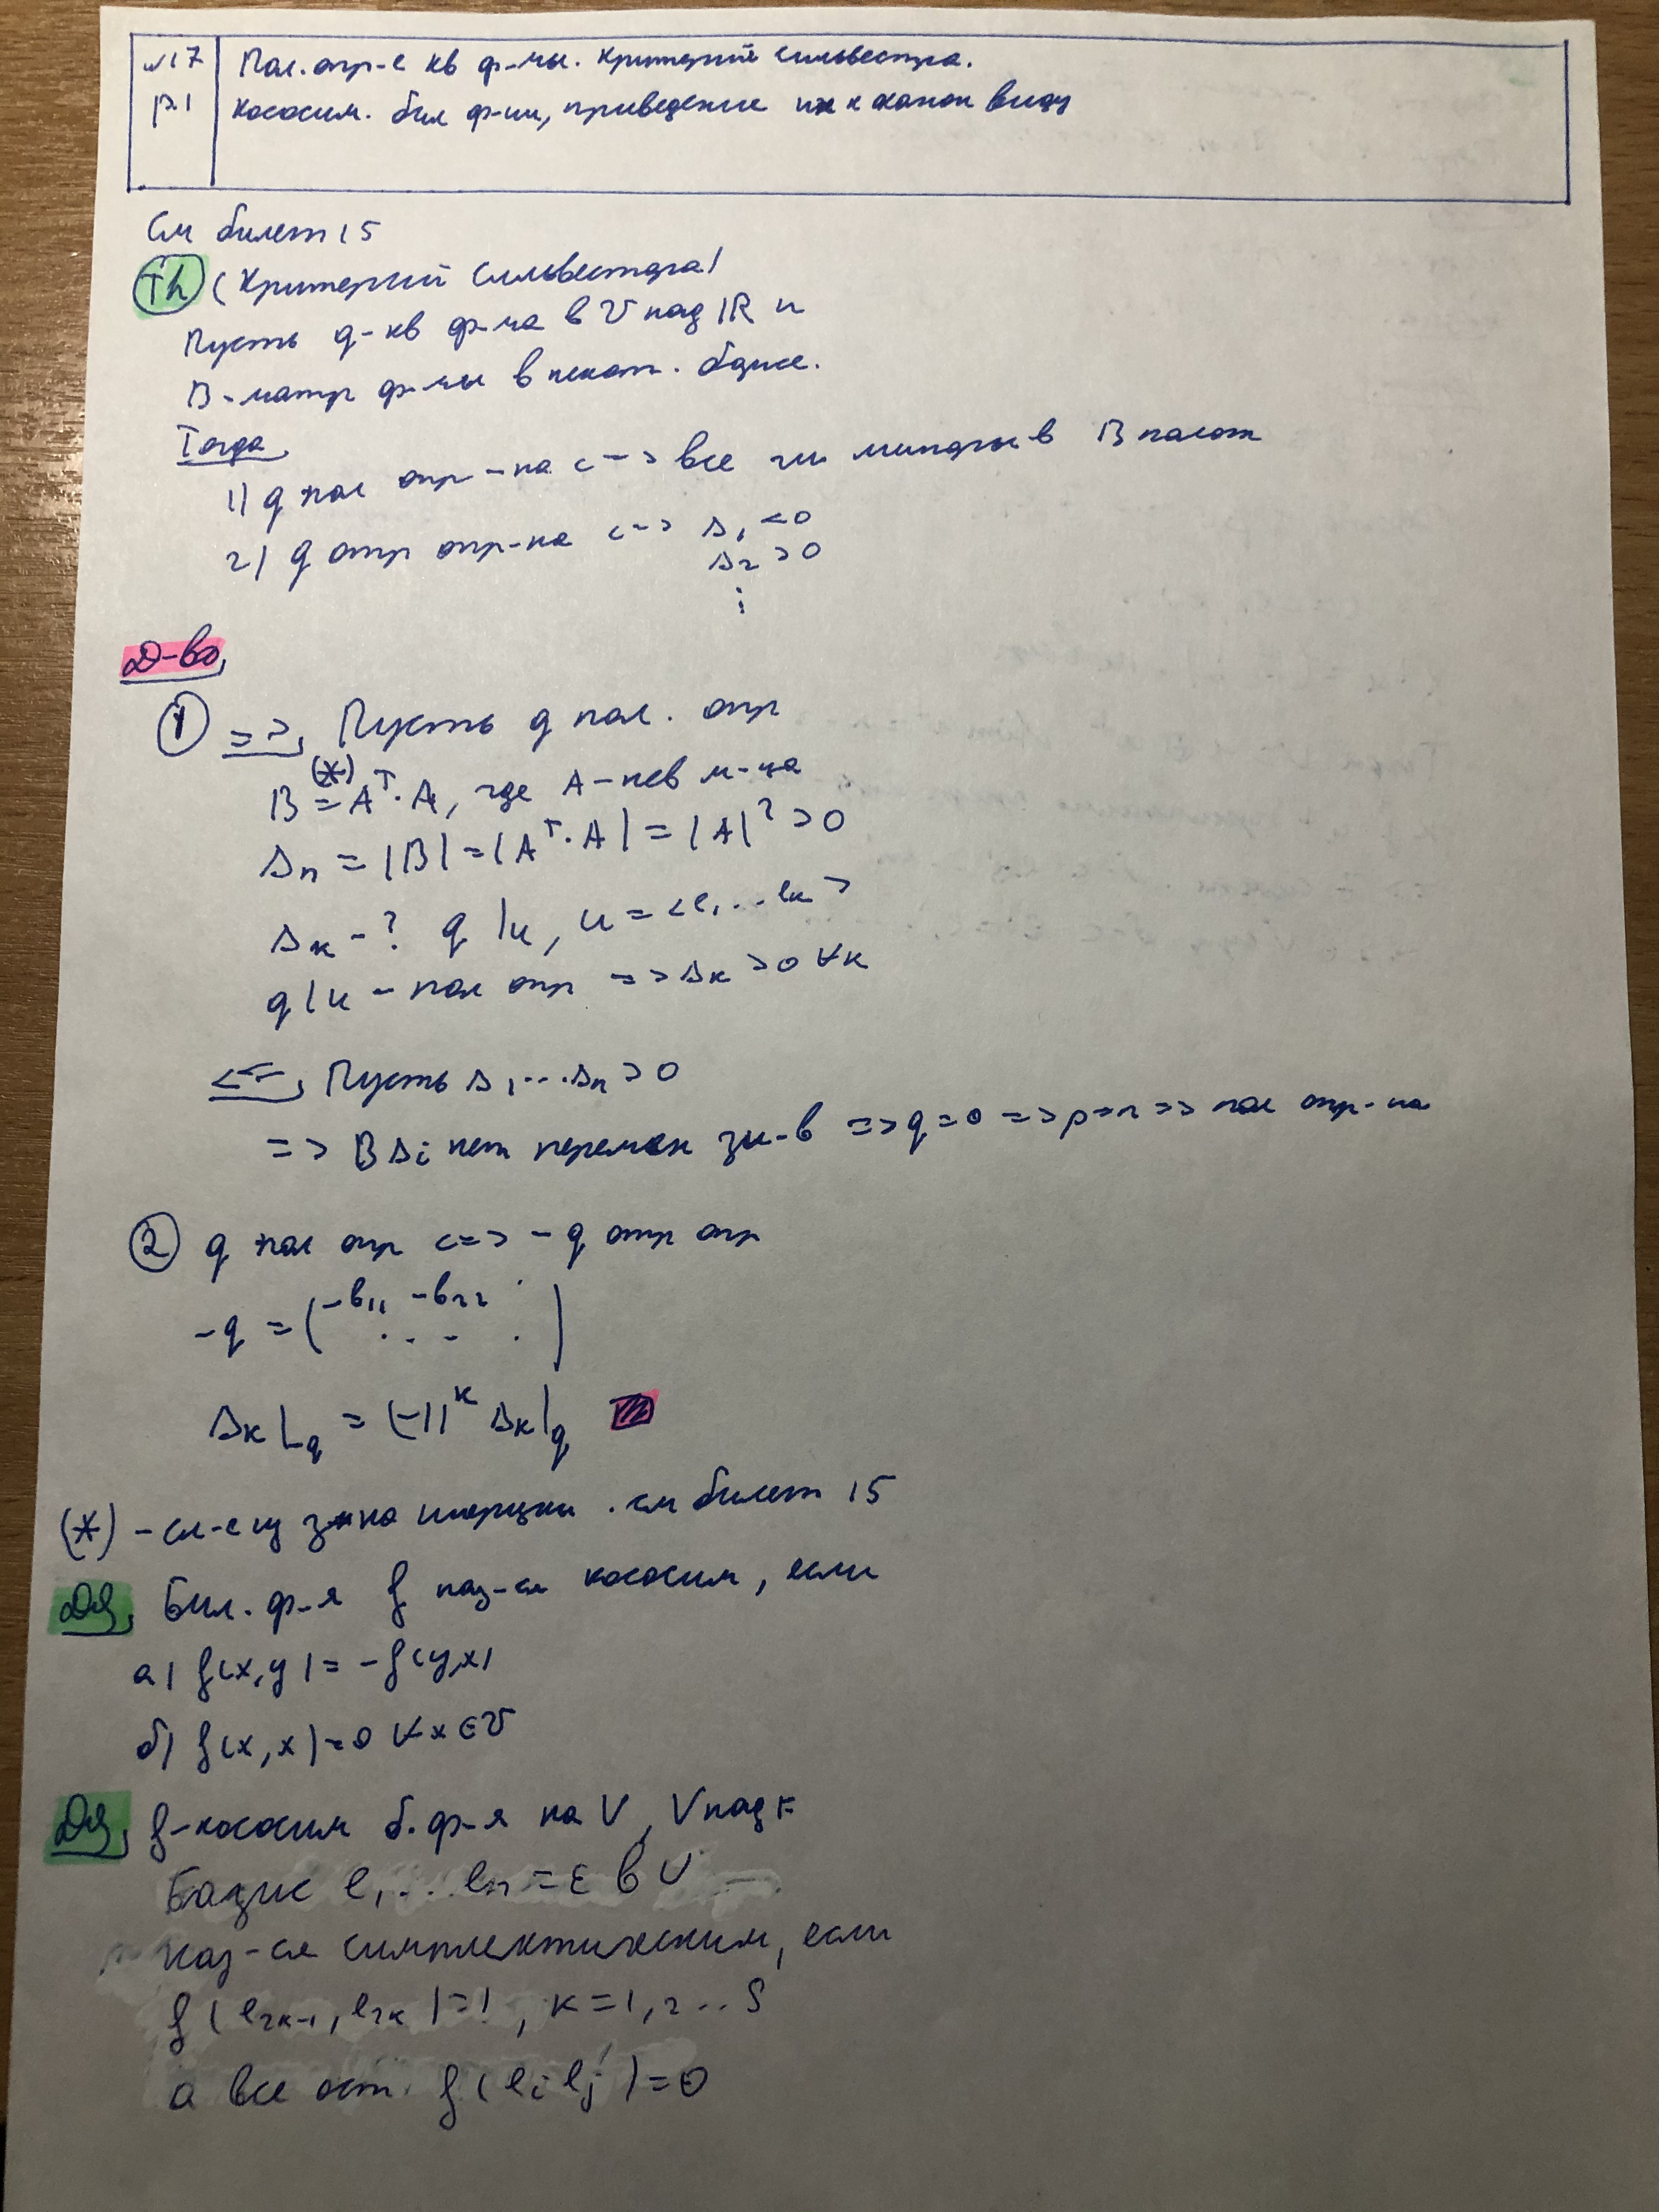 №17 Пол. опр-е кв ф-мы. Критерий Сильвестра.
р.1 Кососим. бил ф-ии, приведение их к канон виду
См билет 15
Th (Критерий Сильвестра)
Пусть q-кв ф-ма в V над |R и
B-матр ф-мы в некот. базисе.
Тогда
1) q пол опр-на <-> все гл. миноры в B полож
2) q отр опр-на <-> Δ₁ <0
Δ₂ >0
⋮
Д-во,
① =>, Пусть q пол. опр
B (*)= Aᵀ·A, где A-нев м-ца
Δn = |B| = |Aᵀ·A| = |A|² >0
Δk -? q|u, u = <e₁...ek>
q|u - пол опр => Δk >0 ∀k
<=, Пусть Δ₁...Δn >0
=> В Δi нет перемен зн-в => q=0 => p=n => пол опр-на
② q пол опр <=> -q отр опр
-q = (-b₁₁ -b₂₂ . . . . )
Δk|-q = (-1)ᵏ Δk|q
(*) - сл-е из з-на инерции. см билет 15
Df, Бил. ф-я f наз-ся кососим, если
а) f(x,y) = -f(y,x)
б) f(x,x)=0 ∀x∈V
Df, f-кососим б. ф-я на V, V над F
Базис e₁...en = ε в V
наз-ся симплектическим, если
f(e₂k-₁, e₂k)=1, k=1,2...S
а все ост. f(ei ej)=0